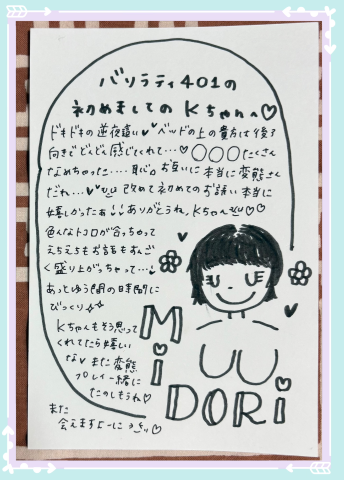 バリラティ401の
初めましてのKちゃんへ♡
ドキドキの逆夜這い♥♥ベッドの上の貴方は後ろ
向きでどんどん感じてくれて…♥○○○たくさん
なめちゃった…恥。お互いに本当に変態さん
だね…♥♥ 改めて初めてのお誘い本当に
嬉しかったぁ!!ありがとうね。Kちゃん♡♡
色んなトコロが合っちゃって
えちえちもお話もすんご
く盛り上がっちゃって…♥
あっとゆう間の時間に
びっくり
Kちゃんもそう思って
くれてたら嬉しい
な♥また変態
プレイ一緒に
たのしもうね♡
また
会えますよーに
MiDORi